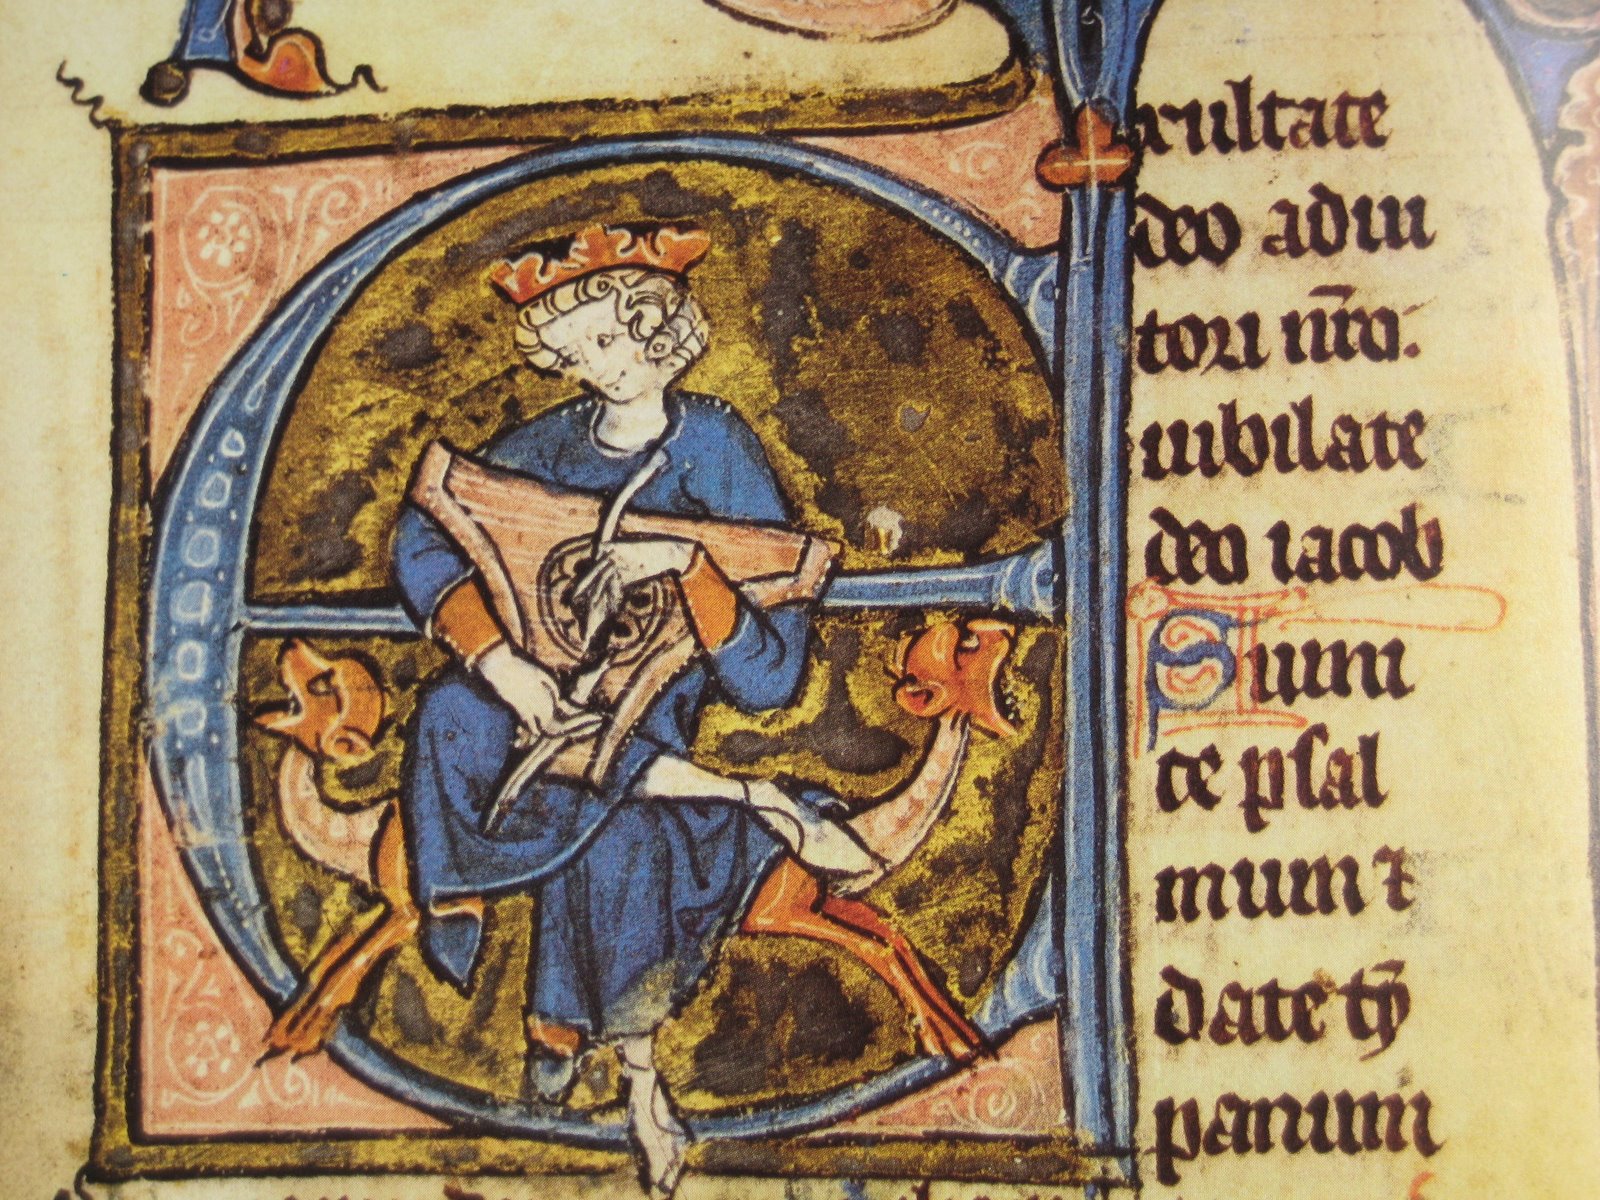 Exultate
deo adiu
tori nr̄o:
iubilate
deo iacob
Sumi
te pſal
mum ⁊
date tỹ
panum